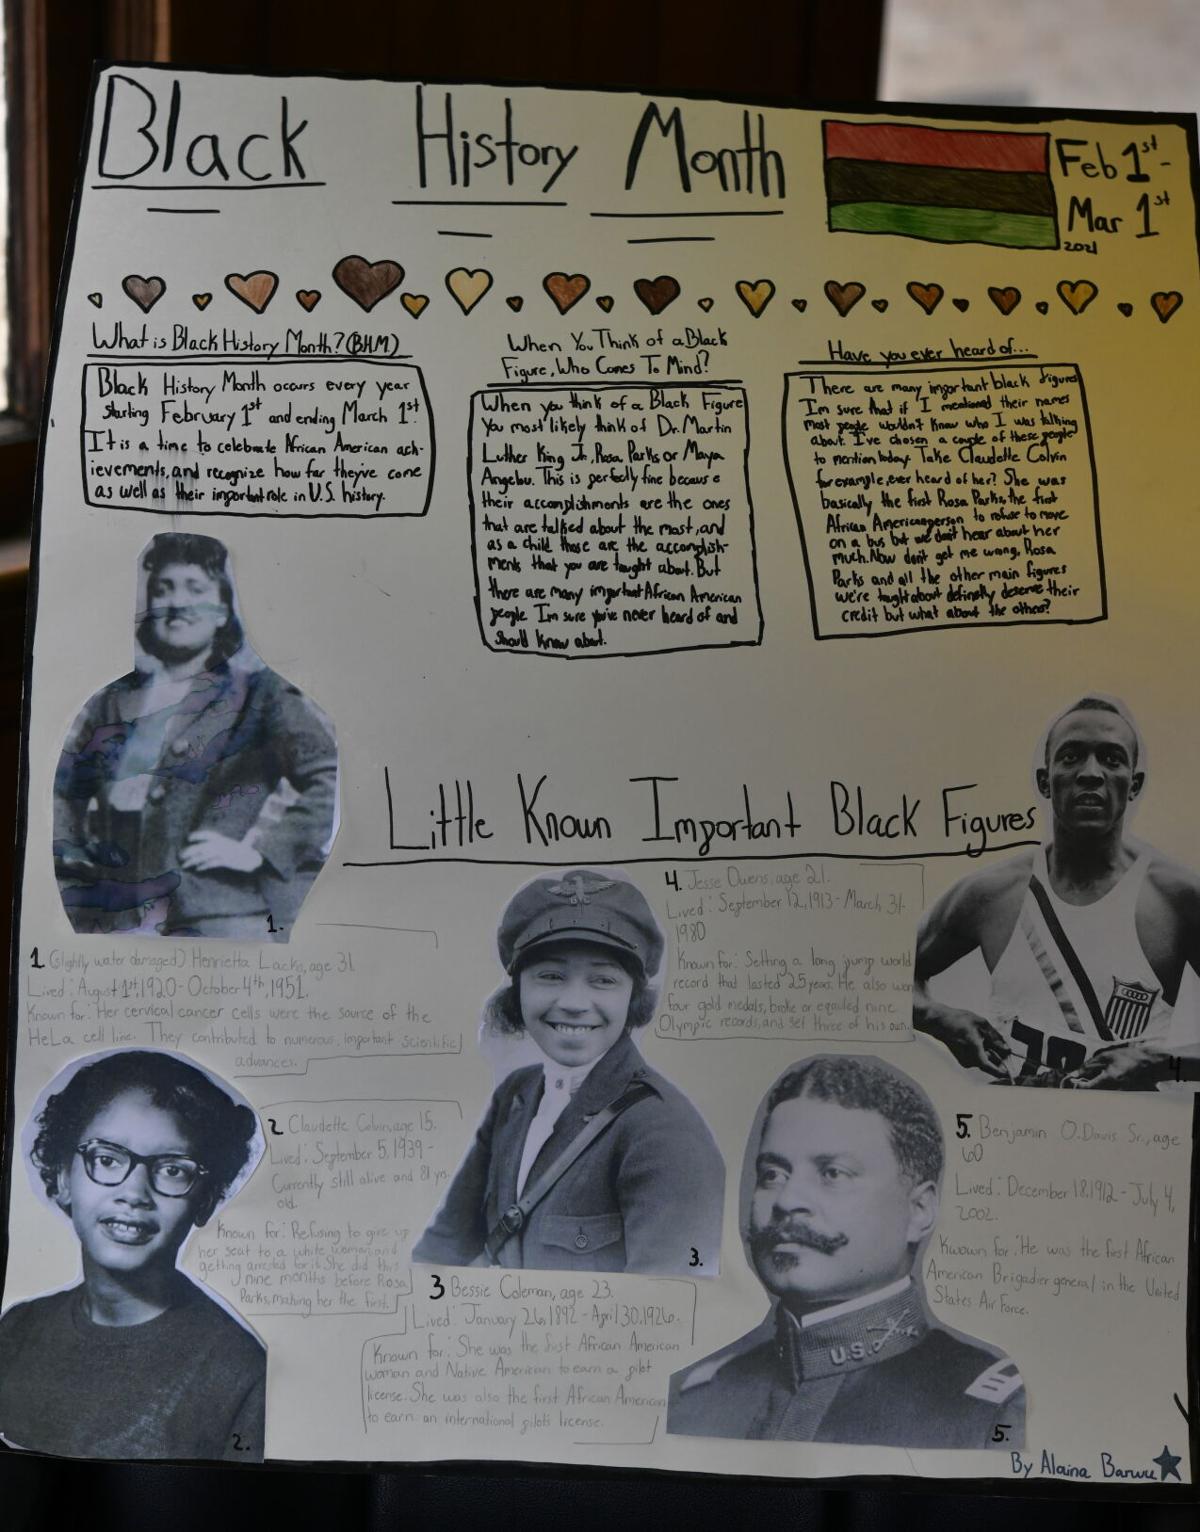 Black History Month
Feb 1st-
Mar 1st
2021
What is Black History Month? (BHM)
Black History Month occurs every year
starting February 1st and ending March 1st.
It is a time to celebrate African American ach-
ievements, and recognize how far they've come
as well as their important role in U.S. history.
When You Think of a Black
Figure, Who Comes To Mind?
When you think of a Black Figure
You most likely think of Dr. Martin
Luther King Jr, Rosa Parks or Maya
Angelou. This is perfectly fine because
their accomplishments are the ones
that are talked about the most, and
as a child those are the accomplish-
ments that you are taught about. But
there are many important African American
people I'm sure you've never heard of and
should know about.
Have you ever heard of...
There are many important black figures
I'm sure that if I mentioned their names
most people wouldn't know who I was talking
about. I've chosen a couple of these people
to mention today. Take Claudette Colvin
for example, ever heard of her? She was
basically the first Rosa Parks, the first
African American person to refuse to move
on a bus but we don't hear about her
much. Now don't get me wrong, Rosa
Parks and all the other main figures
we're taught about definetly deserve their
credit but what about the others?
Little Known Important Black Figures
1.
1 (Slightly water damaged) Henrietta Lacks, age 31.
Lived: August 1st, 1920- October 4th, 1951.
Known for: Her cervical cancer cells were the source of the
HeLa cell line. They contributed to numerous, important scientific
advances.
2 Claudette Colvin, age 15.
Lived: September 5, 1939-
Currently still alive and 81 yrs.
old.
Known for: Refusing to give up
her seat to a white woman, and
getting arrested for it. She did this
nine months before Rosa
Parks, making her the first.
2.
3.
3 Bessie Coleman, age 23.
Lived: January 26, 1892 - April 30, 1926.
Known for: She was the first African American
woman and Native American to earn a pilot
license. She was also the first African American
to earn an international pilots license.
4. Jesse Owens, age 21.
Lived: September 12, 1913- March 31-
1980
Known for: Setting a long jump world
record that lasted 25 years. He also won
four gold medals, broke or equaled nine
Olympic records, and set three of his own.
4.
5. Benjamin O. Davis Sr., age
60
Lived: December 18, 1912 - July 4,
2002.
Kwown for: He was the first African
American Brigadier general in the United
States Air Force.
U.S.
5.
By Alaina Barwu